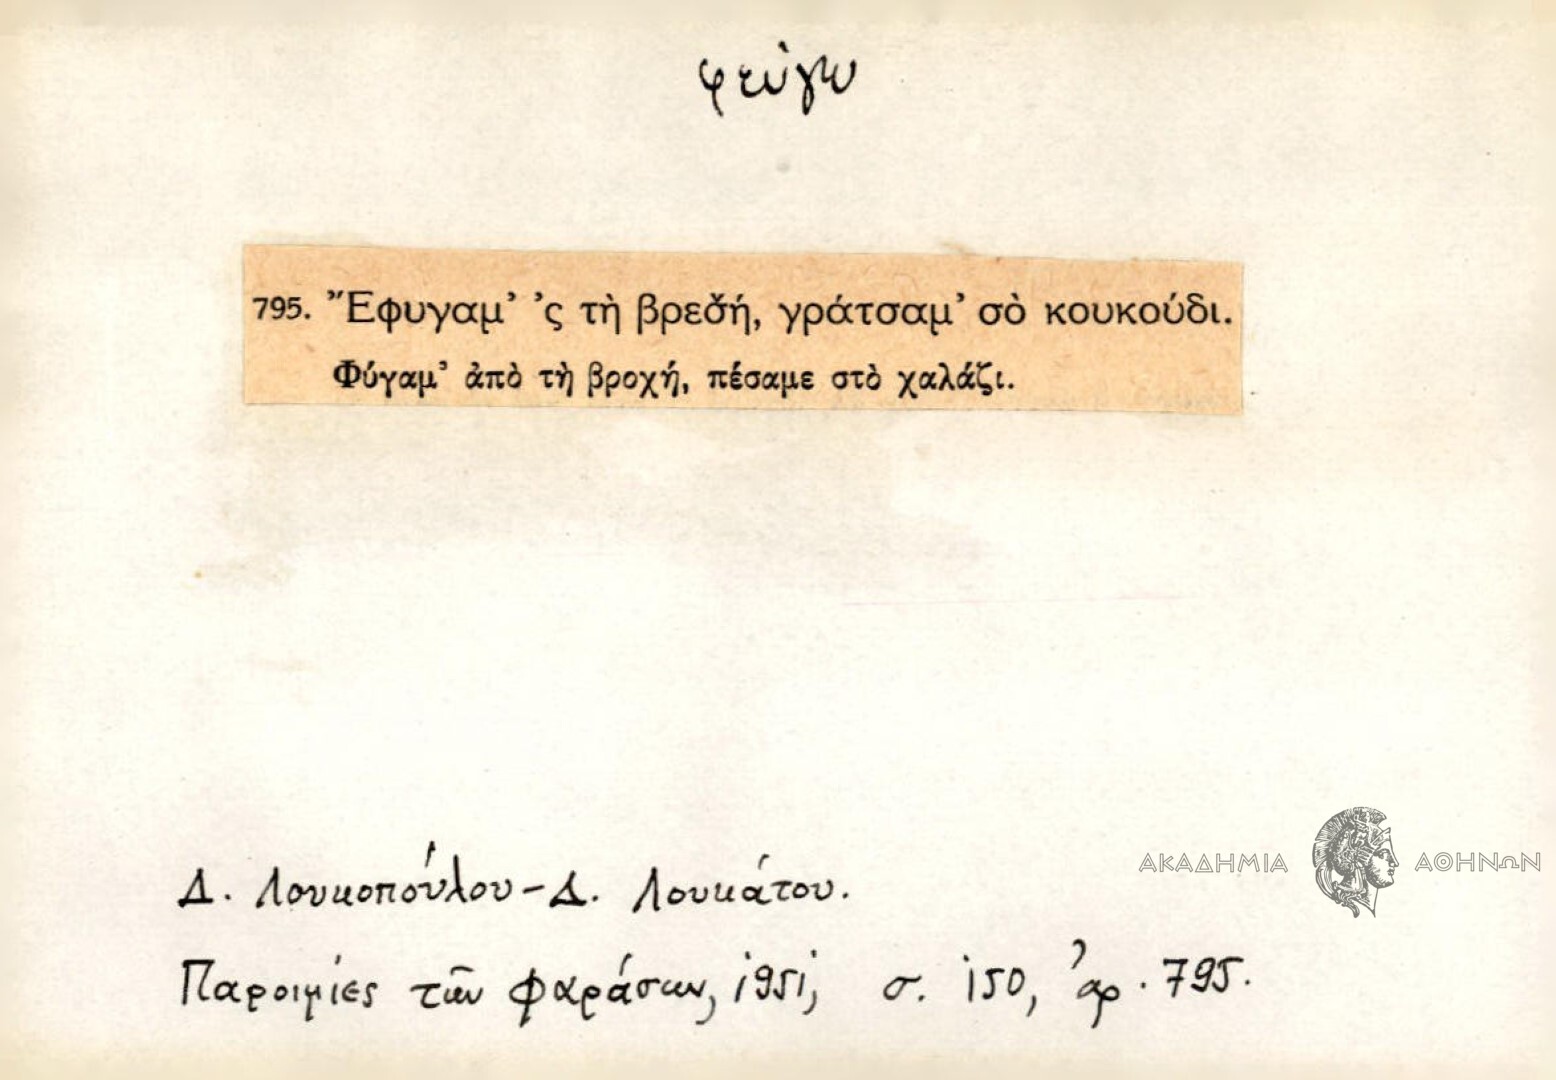 φεύγω
795. Ἔφυγαμ’ ’ς τὴ βρεσ̌ή, γράτσαμ’ σὸ κουκούδι.
Φύγαμ’ ἀπὸ τὴ βροχή, πέσαμε στὸ χαλάζι.
ΑΚΑΔΗΜΙΑ ΑΘΗΝΩΝ
Δ. Λουκοπούλου - Δ. Λουκάτου.
Παροιμίες τῶν Φαράσων, 1951, σ. 150, ἀρ. 795.